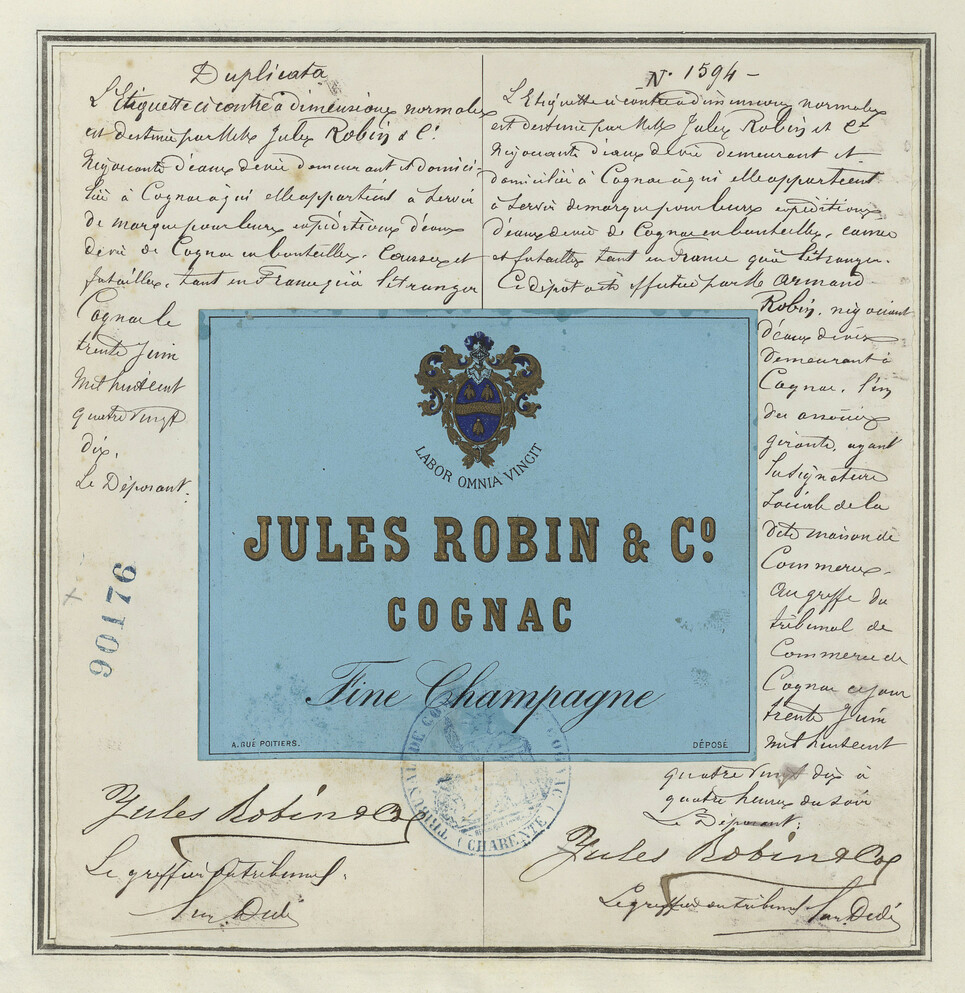 Duplicata
L'Etiquette ci contre à dimensions normales
est destinée par MM Jules Robin & Cie
Négociants d'eaux de vie demeurant et domici-
lié à Cognac à qui elle appartient à servir
de marque pour leurs expéditions d'eaux
de vie de Cognac en bouteilles, caisses et
futailles, tant en France qu'à l'étranger
Cognac le
trente Juin
mil huit cent
quatre vingt
dix.
Le Déposant:
90176
Jules Robin & Co
Le greffier du tribunal.
No 1594 -
L'Etiquette ci contre à dimensions normales
est destinée par MM Jules Robin et Cie
Négociants d'eaux de vie demeurant et
domiciliés à Cognac à qui elle appartient
à servir de marque pour leurs expéditions
d'eaux de vie de Cognac en bouteilles, caisses
et futailles tant en France qu'à l'étranger.
Ce dépôt a été effectué par M Armand
Robin, négociant
d'eaux de vie
demeurant à
Cognac, l'un
des associés
gérants, ayant
la signature
sociale de la
dite maison de
Commerce.
Au greffe du
tribunal de
Commerce de
Cognac ce jour
trente Juin
mil huit cent
quatre vingt dix à
quatre heures du soir
Le Déposant:
Jules Robin & Co
Le greffier du tribunal
LABOR OMNIA VINCIT
JULES ROBIN & Co.
COGNAC
Fine Champagne
A. RUÉ POITIERS.
DÉPOSÉ
TRIBUNAL DE CO
(CHARENTE)